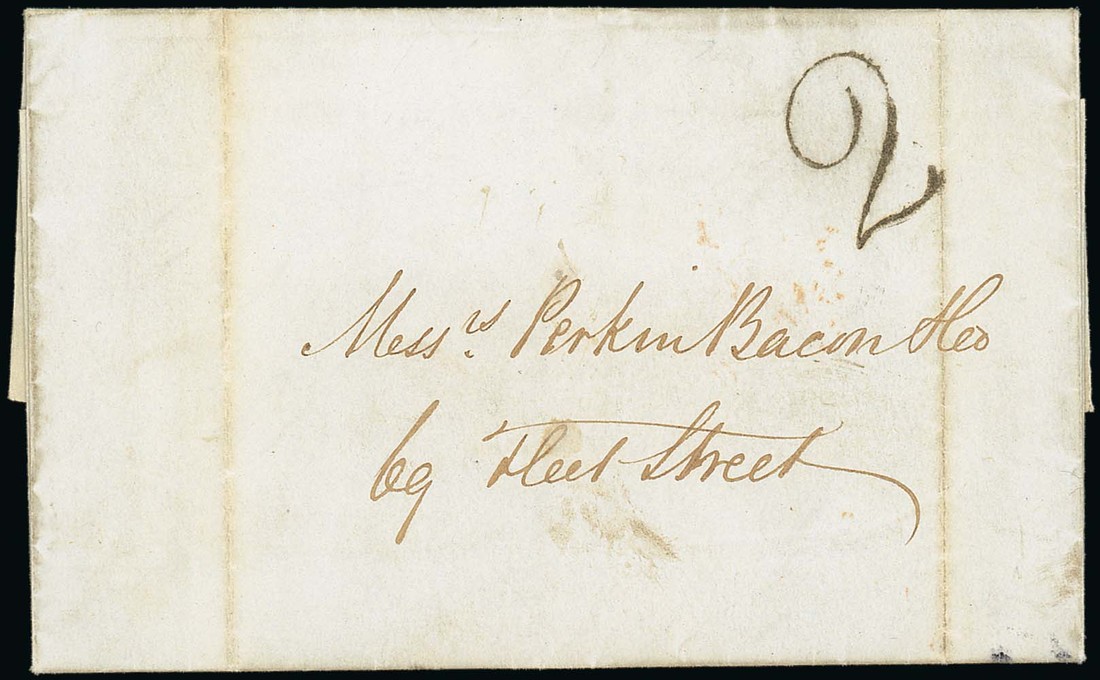 2
Messrs. Perkin Bacon & Co
69 Fleet Street